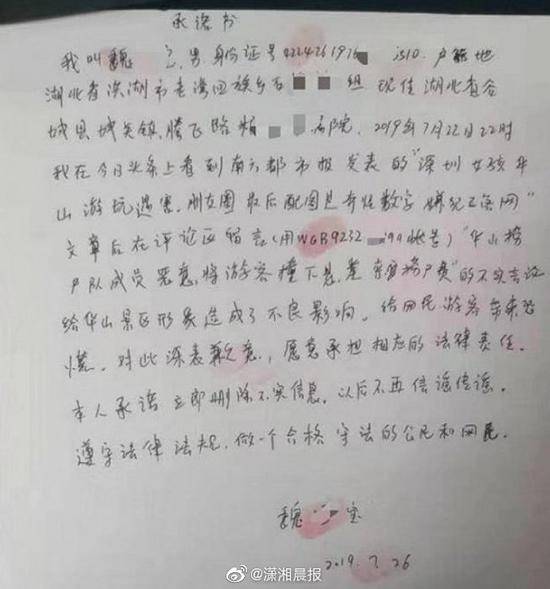 承诺书
我叫魏 男,身份证号422426197 1510.户籍地
湖北省洪湖市老湾回族乡 组 现住湖北省谷
城县城关镇腾飞路 院,2019年7月22日22时
我在今日头条上看到南方都市报发表的“深圳女孩华
山游玩遇害,朋友圈最后配图是奇怪数字 嫌犯已落网”
文章后在评论区留言(用WGB9232 账号)“华山救
护队成员恶意将游客撞下悬崖 索要救护费”的不实言论
给华山景区形象造成了不良影响。给网民游客带来恐
慌。对此深表歉意,愿意承担相应的法律责任。
本人承诺立即删除不实信息,以后不再信谣传谣。
遵守法律法规,做一个合格守法的公民和网民。
魏 宝
2019.7.26
@潇湘晨报